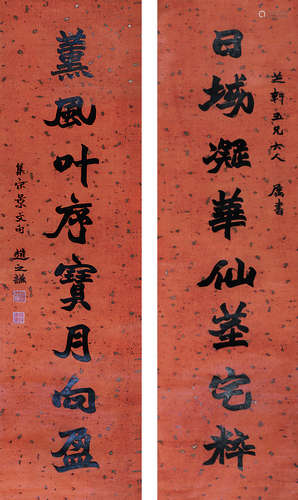 芝軒五兄大人 属書
日域凝華仙莖宅粹
薰風叶序寶月向盈
集宋景文句 趙之謙